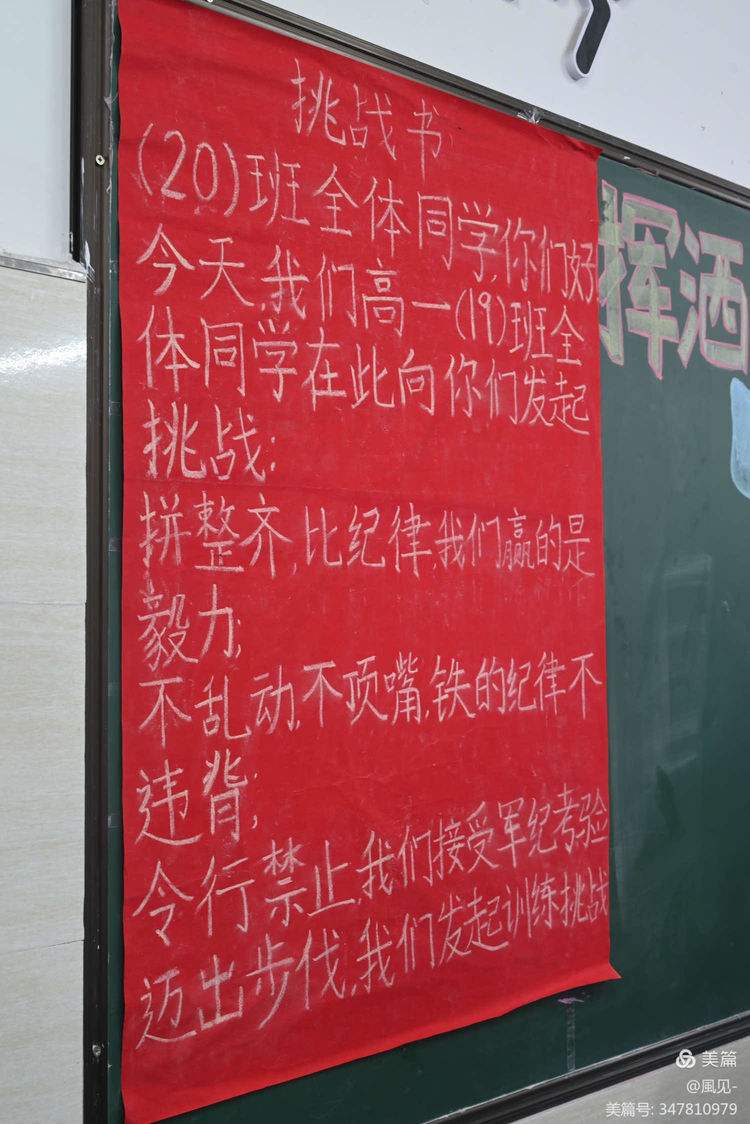 挑战书
(20)班全体同学,你们好
今天,我们高一(19)班全
体同学在此向你们发起
挑战:
拼整齐,比纪律,我们赢的是
毅力;
不乱动,不顶嘴,铁的纪律不
违背;
令行禁止,我们接受军纪考验
迈出步伐,我们发起训练挑战
挥洒
美篇
@風见-
美篇号: 347810979